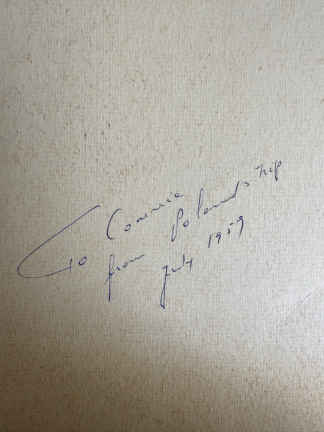 To Connie
from Poland's trip
July 1959